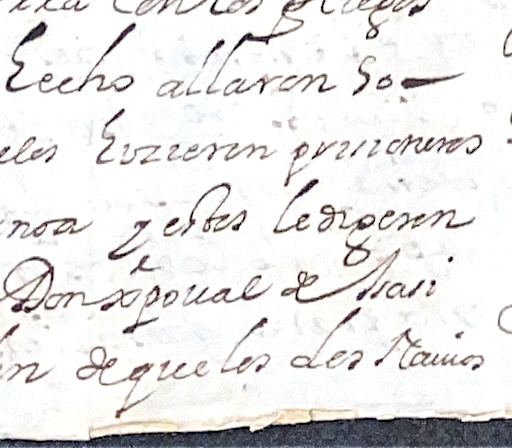 con los pliegos
hecho allaron so
eles hizieron prisioneros
noa y estos le digeron
Don xpoual de
en de que los dos Nauios